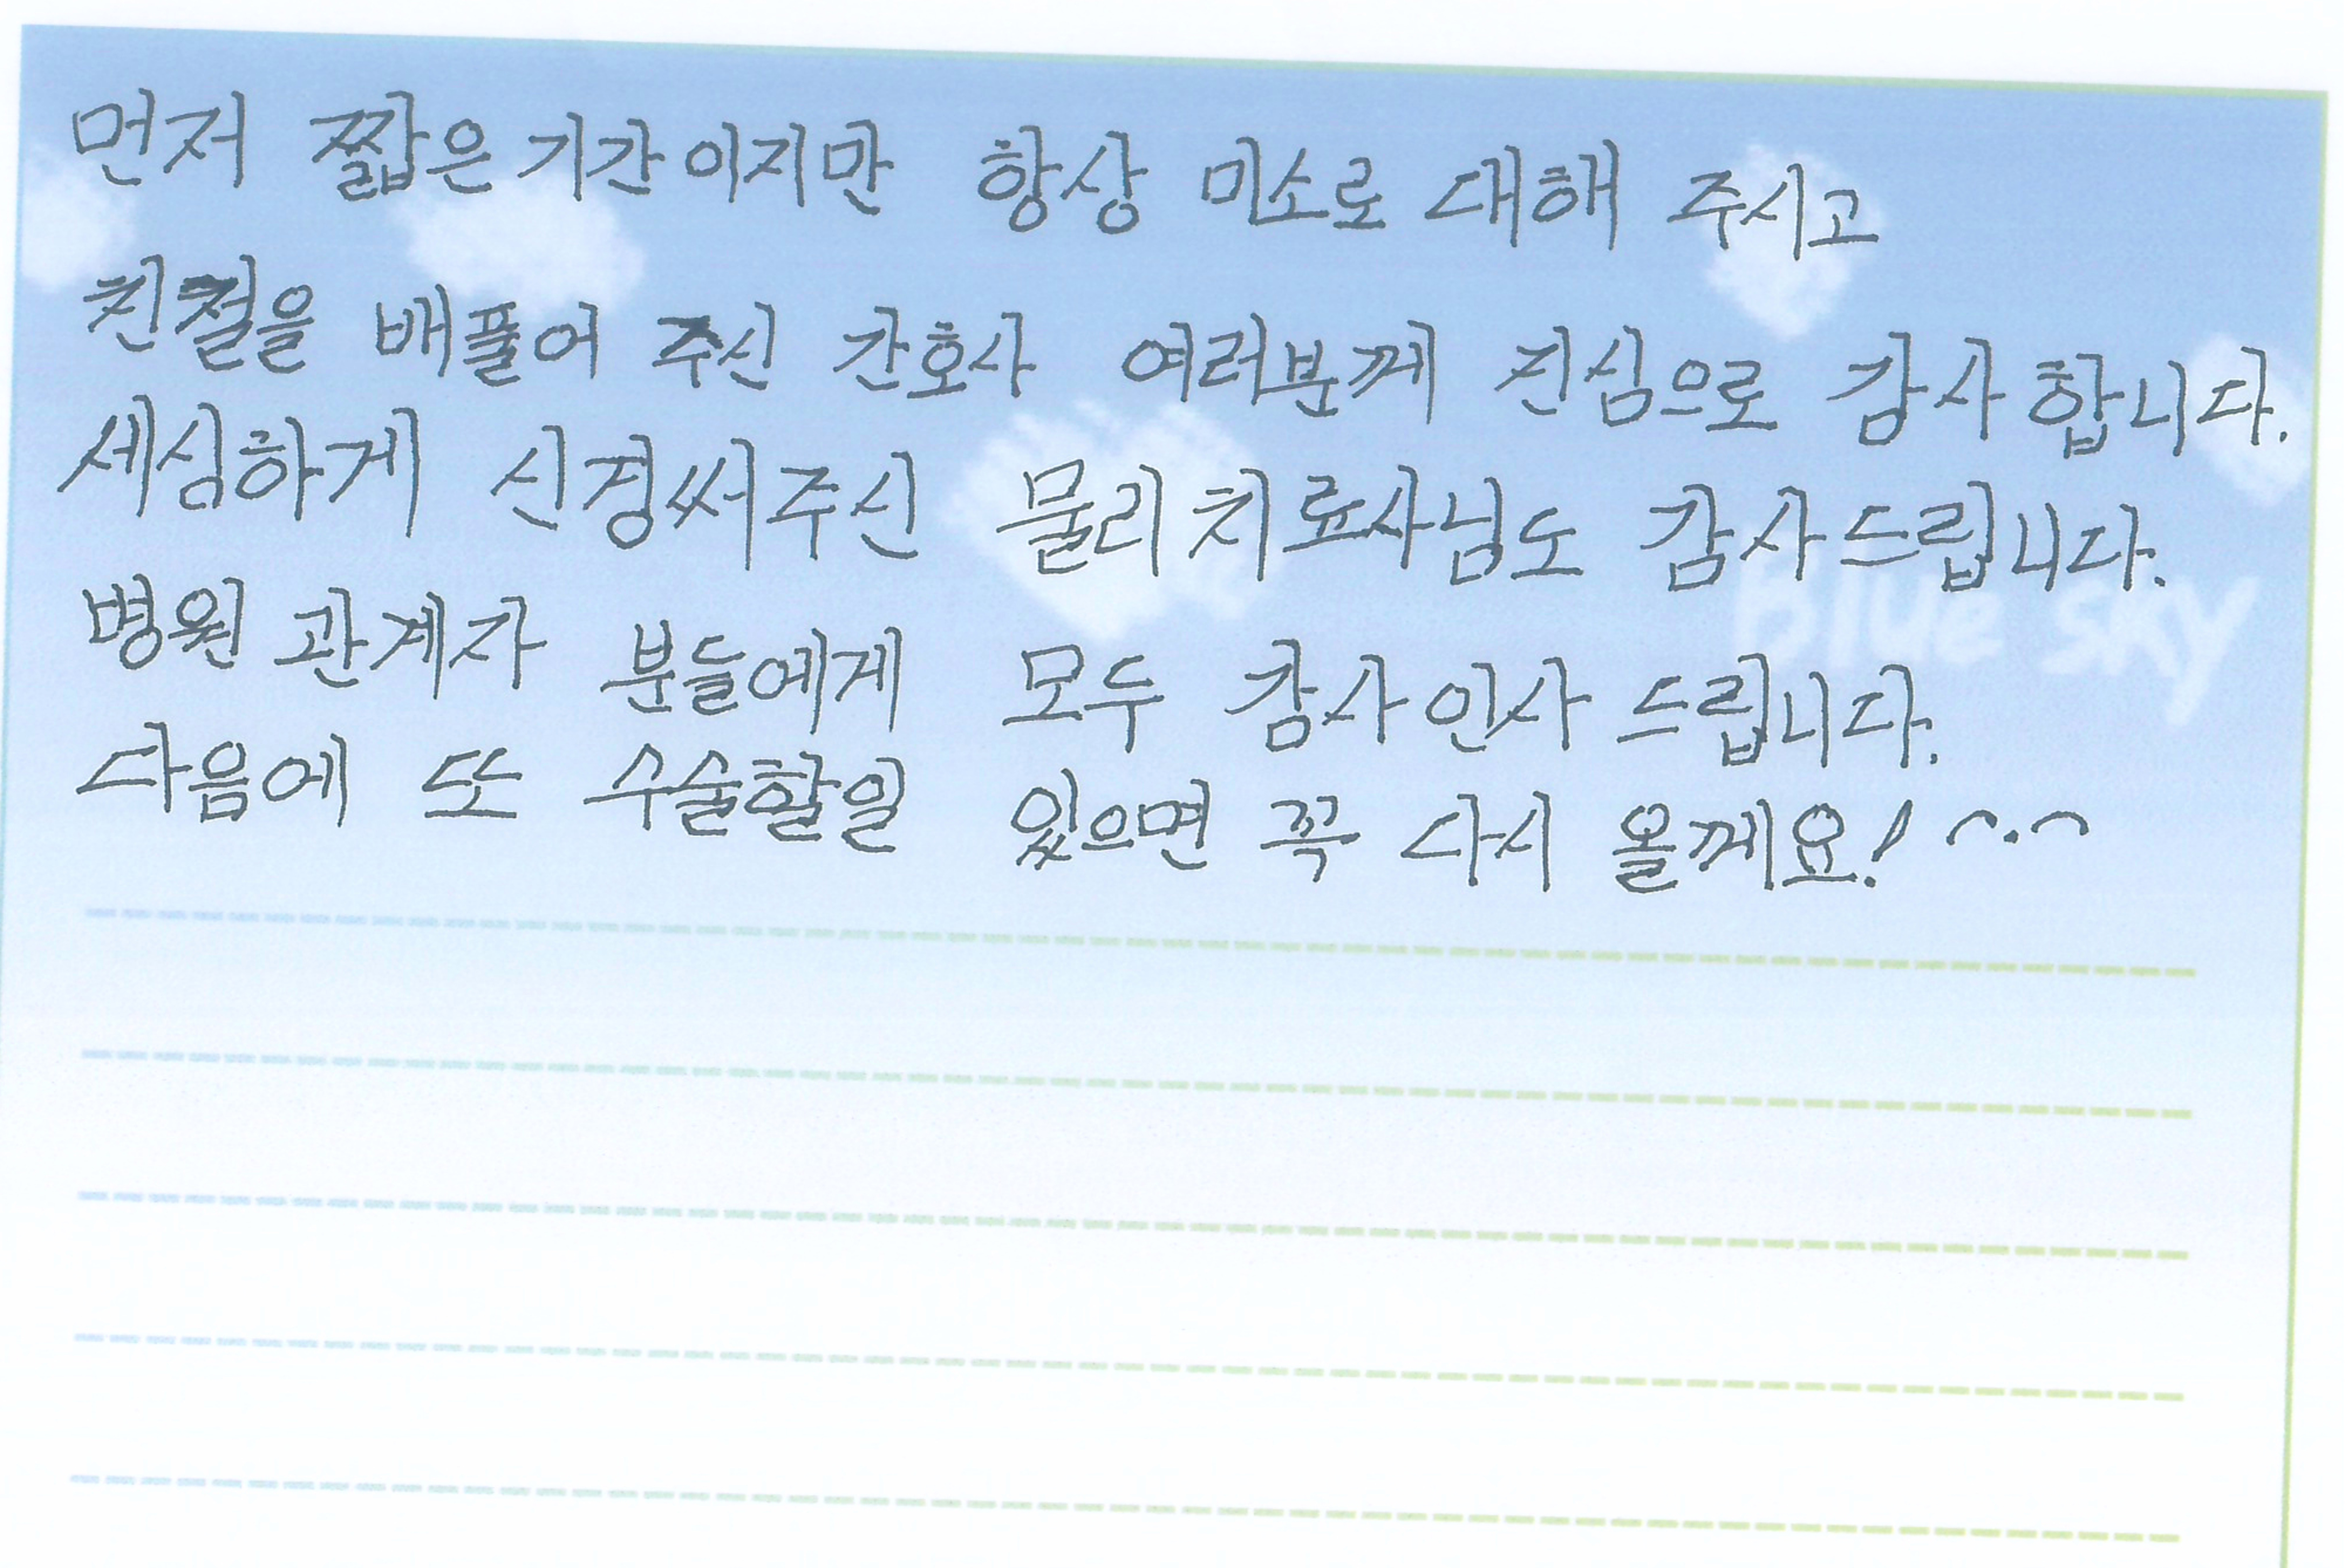 먼저 짧은 기간이지만 항상 미소로 대해 주시고
친절을 배풀어 주신 간호사 여러분께 진심으로 감사합니다.
세심하게 신경써주신 물리치료사님도 감사드립니다.
Blue sky
병원 관계자 분들에게 모두 감사인사 드립니다.
다음에 또 수술할일 있으면 꼭 다시 올께요! ^.^